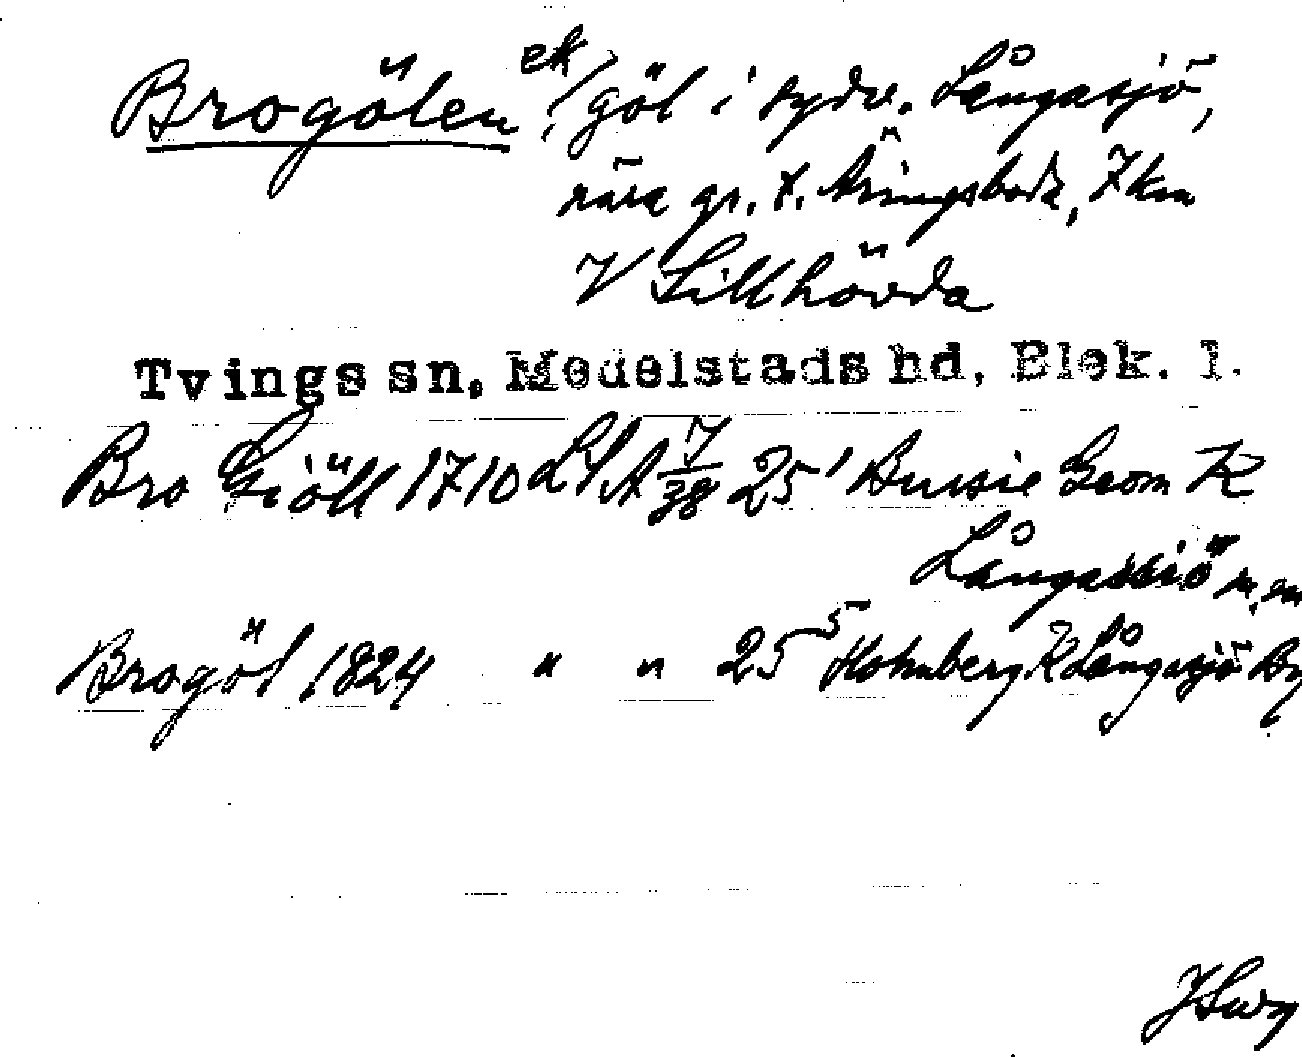 Brogölen ek/ göl i sydv. Långasjö,
nära gr. t. Åringsboda, 7 km
V Sillhövda
Tvings sn, Medelstads hd, Blek. l.
Bro Giöll 1710 LSA 7/38 25¹ Bussie Geom K
Långasiö m.m
Brogöl 1824 " " 25⁵ Holmberg K Långasjö By